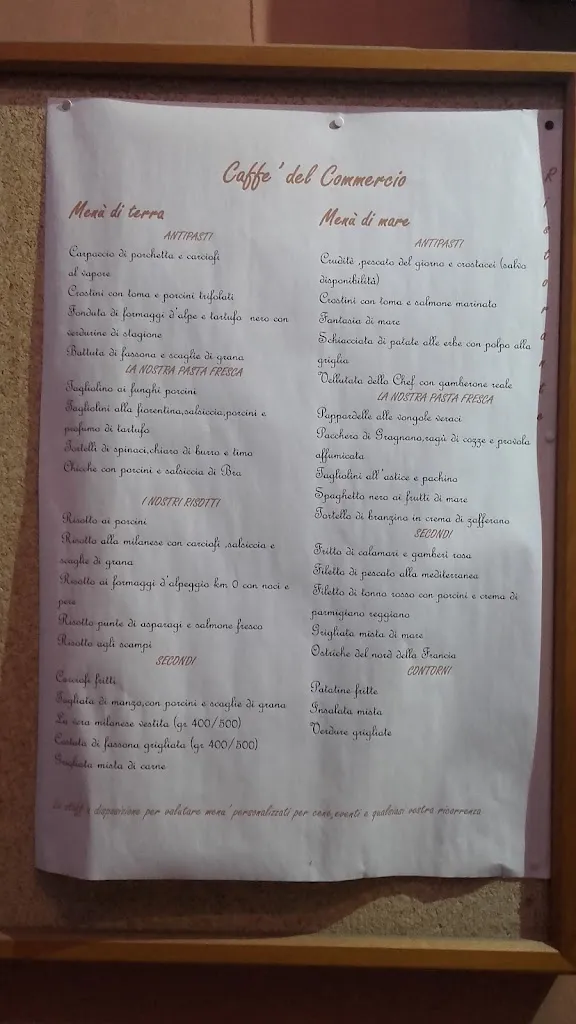 Caffe' del Commercio
Menù di terra
ANTIPASTI
Carpaccio di porchetta e carciofi
al vapore
Crostini con toma e porcini trifolati
Fonduta di formaggi d'alpe e tartufo nero con
verdurine di stagione
Battuta di fassona e scaglie di grana
LA NOSTRA PASTA FRESCA
Tagliolino ai funghi porcini
Tagliolini alla fiorentina,salsiccia,porcini e
profumo di tartufo
Tortelli di spinaci,chiaro di burro e timo
Chicche con porcini e salsiccia di Bra
I NOSTRI RISOTTI
Risotto ai porcini
Risotto alla milanese con carciofi ,salsiccia e
scaglie di grana
Risotto ai formaggi d'alpeggio km 0 con noci e
pere
Risotto punte di asparagi e salmone fresco
Risotto agli scampi
SECONDI
Carciofi fritti
Tagliata di manzo,con porcini e scaglie di grana
La vera milanese vestita (gr 400/500)
Costata di fassona grigliata (gr 400/500)
Grigliata mista di carne
Menù di mare
ANTIPASTI
Cruditè ,pescato del giorno e crostacei (salvo
disponibilità)
Crostini con toma e salmone marinato
Fantasia di mare
Schiacciata di patate alle erbe con polpo alla
griglia
Vellutata dello Chef con gamberone reale
LA NOSTRA PASTA FRESCA
Pappardelle alle vongole veraci
Pacchero di Gragnano,ragù di cozze e provola
affumicata
Tagliolini all'astice e pachino
Spaghetto nero ai frutti di mare
Tortello di branzino in crema di zafferano
SECONDI
Fritto di calamari e gamberi rosa
Filetto di pescato alla mediterranea
Filetto di tonno rosso con porcini e crema di
parmigiano reggiano
Grigliata mista di mare
Ostriche del nord della Francia
CONTORNI
Patatine fritte
Insalata mista
Verdure grigliate
Lo staff a disposizione per valutare menu' personalizzati per cene,eventi e qualsiasi vostra ricorrenza
Ristorante